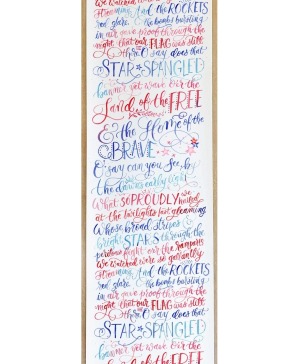 streaming, And the ROCKETS
red glare, the bombs bursting
in air gave proof through the
night that our FLAG was still
there O say does that
STAR SPANGLED
banner yet wave O'er the
Land of the FREE
& the Home of the
BRAVE
O say can you see, by
the dawn's early light
What SO PROUDLY we
hailed
at the twilights last gleaming
Whose broad stripes &
bright STARS through the
perilous fight O'er the ramparts
We watched were so gallantly
streaming, And the ROCKETS
red glare, the bombs bursting
in air gave proof through the
night that our FLAG was still
there O say does that
STAR SPANGLED
banner yet wave O'er the
Land of the FREE